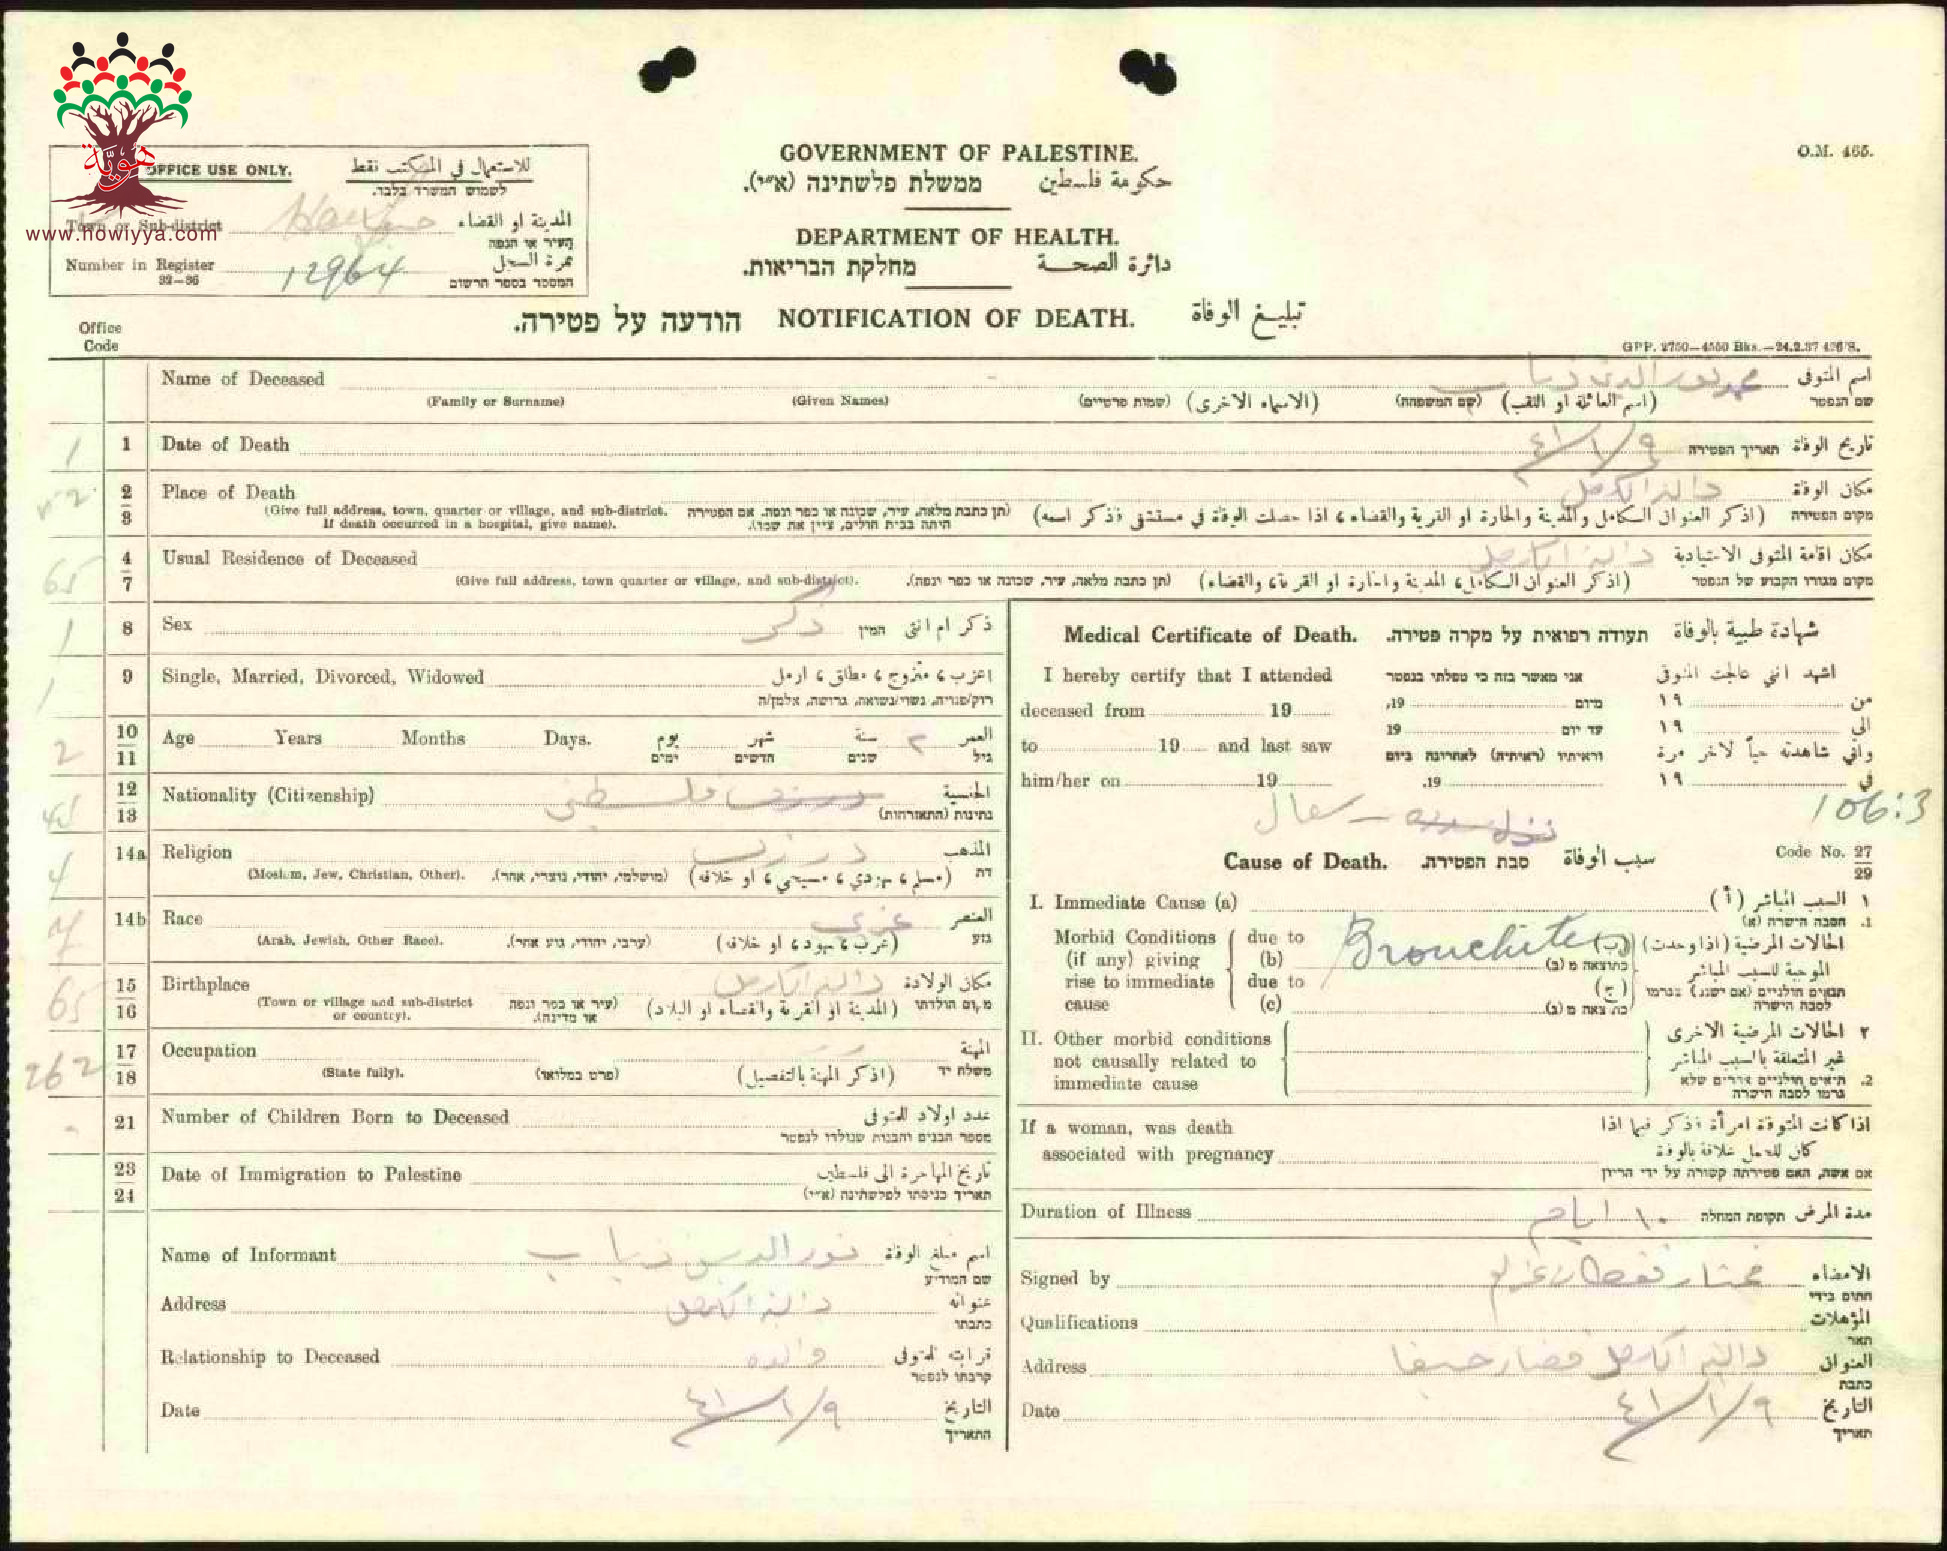 هويّة
www.howiyya.com
OFFICE USE ONLY. للاستعمال في المكتب فقط
לשמוש המשרד בלבד.
Town or Sub-district Haifa حيفا المدينة او القضاء
העיר או הנפה
Number in Register 12964 نمرة السجل
32—36 המספר בספר הרשום
GOVERNMENT OF PALESTINE.
ממשלת פלשתינה (א״י). حكومة فلسطين
DEPARTMENT OF HEALTH.
מחלקת הבריאות. دائرة الصحة
O.M. 465.
הודעה על פטירה. NOTIFICATION OF DEATH. تبليغ الوفاة
Office
Code
GPP. 2750—4550 Bks.—24.2.37 426/S.
Name of Deceased محمد نور الدين ذياب اسم المتوفى
(Family or Surname) (Given Names) (שמות פרטיים) (الاسماء الاخرى) (שם המשפחה) (اسم العائلة او اللقب) שם הנפטר
1 1 Date of Death ٩/١/٤١ תאריך הפטירה تاريخ الوفاة
2 2 Place of Death دالية الكرمل مكان الوفاة
3 (Give full address, town, quarter or village, and sub-district. (תן כתבת מלאה, עיר, שכונה או כפר ונפה. אם הפטירה (اذكر العنوان الكامل والمدينة والحارة او القرية والقضاء، اذا حصلت الوفاة في مستشفى فذكر اسمه) מקום הפטירה
If death occurred in a hospital, give name). היתה בבית חולים, ציין את שמו).
65 4 Usual Residence of Deceased دالية الكرمل مكان اقامة المتوفى الاعتيادية
7 (Give full address, town quarter or village, and sub-district). (תן כתבת מלאה, עיר, שכונה או כפר ונפה). (اذكر العنوان الكامل، المدينة والحارة او القرية، والقضاء) מקום מגורו הקבוע של הנפטר
1 8 Sex ذكر המין ذكر ام انثى
1 9 Single, Married, Divorced, Widowed اعزب، متزوج، مطلق، ارمل
רוק/פנויה, נשוי/נשואה, גרושה, אלמן/ה
2 10 Age Years Months Days. יום شهر سنة ٢ العمر
11 ימים חדשים שנים גיל
12 Nationality (Citizenship) درزي فلسطيني الجنسية
13 נתינות (התאזרחות)
4 14a Religion درزي المذهب
(Moslem, Jew, Christian, Other). (מושלמי, יהודי, נוצרי, אחר). (مسلم، يهودي، مسيحي، او خلافه) דת
14b Race عربي العنصر
(Arab, Jewish, Other Race). (ערבי, יהודי, גזע אחר). (عرب، يهود، او خلافه) גזע
65 15 Birthplace دالية الكرمل مكان الولادة
16 (Town or village and sub-district (עיר או כפר ונפה (المدينة او القرية والقضاء او البلاد) מקום הולדתו
or country). או מדינה).
262 17 Occupation المهنة
18 (State fully). (פרט במלואו) (اذكر المهنة بالتفصيل) משלח יד
21 Number of Children Born to Deceased عدد اولاد المتوفى
מספר הבנים והבנות שנולדו לנפטר
23 Date of Immigration to Palestine تاريخ المهاجرة الى فلسطين
24 תאריך כניסתו לפלשתינה (א״י)
Name of Informant نور الدين ذياب اسم مبلغ الوفاة
שם המודיע
Address دالية الكرمل عنوانه
כתבתו
Relationship to Deceased والده قرابته للمتوفى
קרבתו לנפטר
Date ٩/١/٤١ التاريخ
התאריך
Medical Certificate of Death. תעודה רפואית על מקרה פטירה. شهادة طبية بالوفاة
I hereby certify that I attended אני מאשר בזה כי טפלתי בנפטר اشهد انني عالجت المتوفى
deceased from 19 מיום 19, من ١٩
to 19 and last saw עד יום 19 الى ١٩
וראיתיו (ראיתיה) לאחרונה ביום واني شاهدته حياً لآخر مرة
him/her on 19 19. في ١٩
106:3
سعال
Cause of Death. סבת הפטירה. سبب الوفاة Code No. 27
29
I. Immediate Cause (a) ١ السبب المباشر (أ)
1. הסבה הישרה (א)
Morbid Conditions due to Bronchite الحالات المرضية (اذا وجدت) (ب)
(if any) giving (b) כתוצאה מ (ב) الموجبة للسبب المباشر
rise to immediate due to (ج) תנאים חולניים (אם ישנם) שגרמו
cause (c) כתוצאה מ (ג) לסבה הישרה
II. Other morbid conditions ٢ الحالات المرضية الاخرى
not causally related to غير المتعلقة بالسبب المباشر
immediate cause 2. תנאים חולניים אחרים שלא
גרמו לסבה הישרה
If a woman, was death اذا كانت المتوفاة امرأة فذكر فيما اذا
associated with pregnancy كان للحمل علاقة بالوفاة
אם אשה, האם פטירתה קשורה על ידי הריון
Duration of Illness ١٠ ايام תקופת המחלה مدة المرض
Signed by مختار الامضاء
חתום בידי
Qualifications المؤهلات
תאר
Address دالية الكرمل قضاء حيفا العنوان
כתבת
Date ٩/١/٤١ التاريخ
תאריך